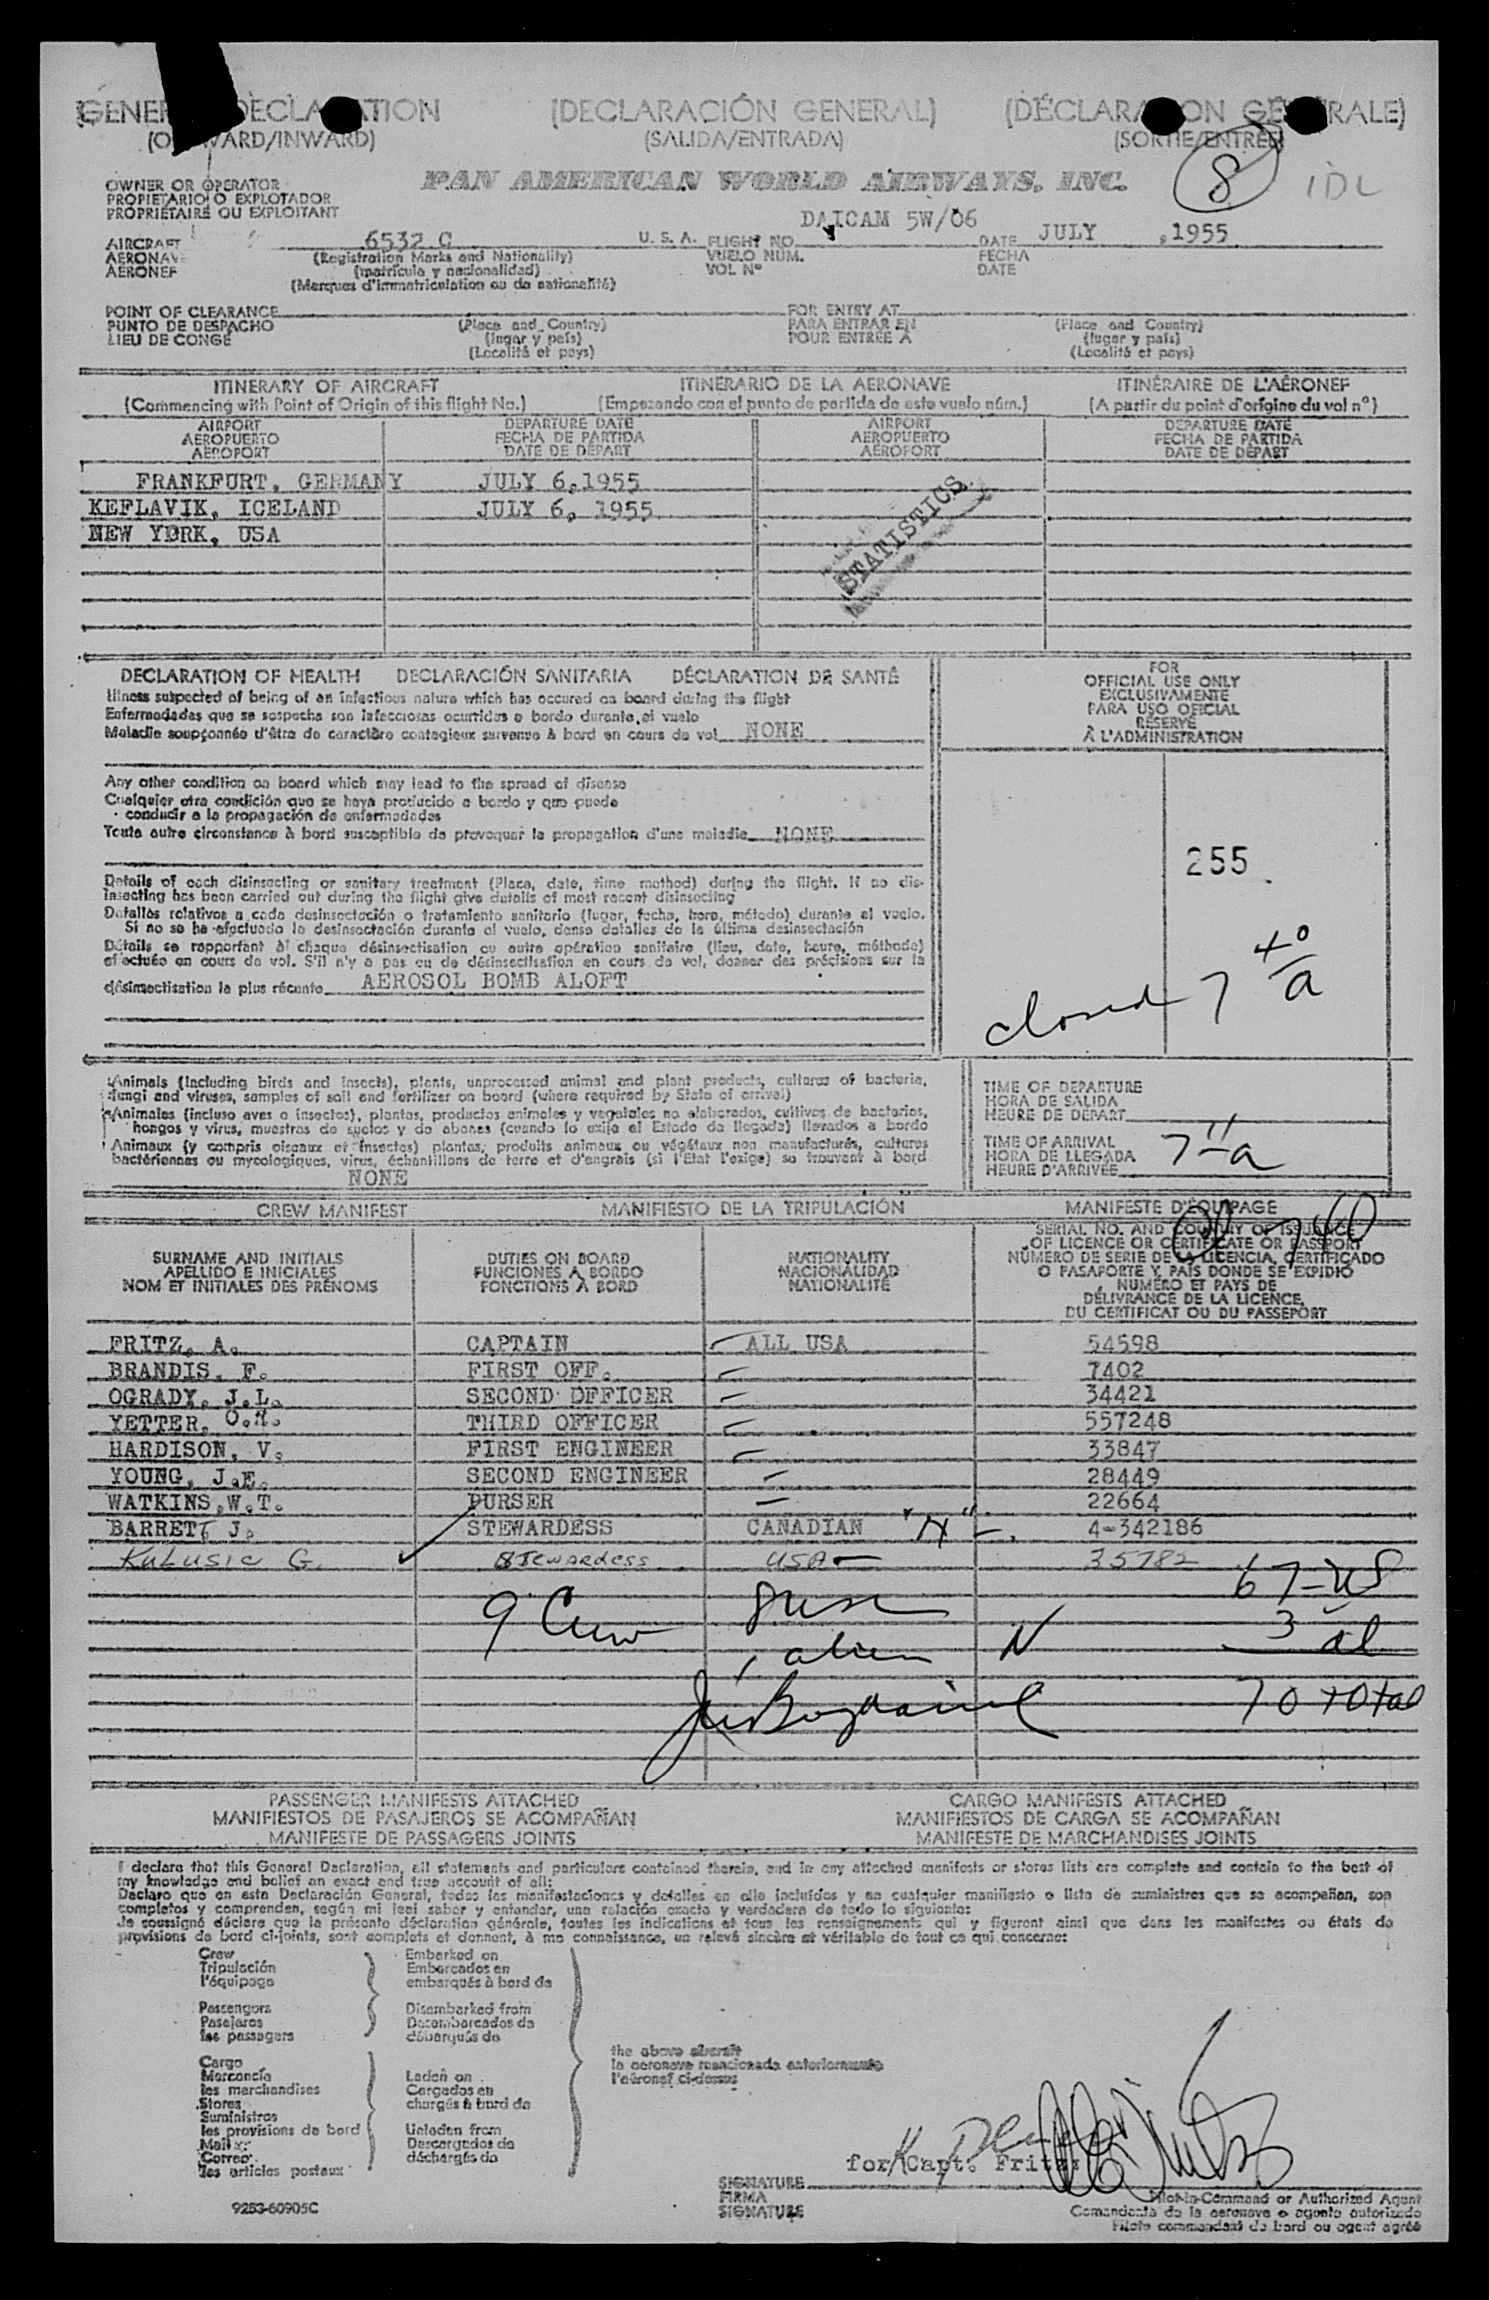 (GENERAL DECLARATION (DECLARACIÓN GENERAL) (DÉCLARATION GÉNÉRALE)
(OUTWARD/INWARD) (SALIDA/ENTRADA) (SORTIE/ENTRÉE)
8 IDL
OWNER OR OPERATOR
PROPIETARIO O EXPLOTADOR
PROPRIÉTAIRE OU EXPLOITANT
PAN AMERICAN WORLD AIRWAYS, INC.
DAICAM 5W/06
AIRCRAFT 6532 C U. S. A. FLIGHT NO. DATE JULY , 1955
AERONAVE (Registration Marks and Nationality) VUELO NÚM. FECHA
AÉRONEF (matrícula y nacionalidad) VOL Nº DATE
(Marques d'immatriculation ou de nationalité)
POINT OF CLEARANCE FOR ENTRY AT
PUNTO DE DESPACHO (Place and Country) PARA ENTRAR EN (Place and Country)
LIEU DE CONGÉ (lugar y país) POUR ENTRÉE À (lugar y país)
(Localité et pays) (Localité et pays)
ITINERARY OF AIRCRAFT ITINERARIO DE LA AERONAVE ITINÉRAIRE DE L'AÉRONEF
(Commencing with Point of Origin of this flight No.) (Empezando con el punto de partida de este vuelo núm.) (A partir du point d'origine du vol nº)
AIRPORT DEPARTURE DATE AIRPORT DEPARTURE DATE
AEROPUERTO FECHA DE PARTIDA AEROPUERTO FECHA DE PARTIDA
AÉROPORT DATE DE DÉPART AÉROPORT DATE DE DÉPART
FRANKFURT, GERMANY JULY 6,1955
KEFLAVIK, ICELAND JULY 6, 1955
NEW YORK, USA
STATISTICS
DECLARATION OF HEALTH DECLARACIÓN SANITARIA DÉCLARATION DE SANTÉ
Illness suspected of being of an infectious nature which has occured on board during the flight
Enfermedades que se sospecha son infecciosas ocurridas a bordo durante el vuelo
Maladie soupçonnée d'être de caractère contagieux survenue à bord en cours de vol NONE
FOR
OFFICIAL USE ONLY
EXCLUSIVAMENTE
PARA USO OFICIAL
RÉSERVÉ
À L'ADMINISTRATION
Any other condition on board which may lead to the spread of disease
Cualquier otra condición que se haya producido a bordo y que puede
conducir a la propagación de enfermedades
Toute autre circonstance à bord susceptible de provoquer la propagation d'une maladie NONE
255
Details of each disinsecting or sanitary treatment (Place, date, time method) during the flight. If no dis-
insecting has been carried out during the flight give details of most recent disinsecting
Detalles relativos a cada desinsectación o tratamiento sanitario (lugar, fecha, hora, método) durante el vuelo.
Si no se ha efectuado la desinsectación durante el vuelo, dense detalles de la última desinsectación
Détails se rapportant à chaque désinsectisation ou autre opération sanitaire (lieu, date, heure, méthode)
effectuée en cours de vol. S'il n'y a pas eu de désinsectisation en cours de vol, donner des précisions sur la
désinsectisation la plus récente AEROSOL BOMB ALOFT
closed 7 40 a
Animals (Including birds and insects), plants, unprocessed animal and plant products, cultures of bacteria,
fungi and viruses, samples of soil and fertilizer on board (where required by State of arrival)
Animales (incluso aves e insectos), plantas, productos animales y vegetales no elaborados, cultivos de bacterias,
hongos y virus, muestras de suelos y de abonos (cuando lo exija el Estado de llegada) llevados a bordo
Animaux (y compris oiseaux et insectes) plantes, produits animaux ou végétaux non manufacturés, cultures
bactériennes ou mycologiques, virus, échantillons de terre et d'engrais (si l'État l'exige) se trouvant à bord
NONE
TIME OF DEPARTURE
HORA DE SALIDA
HEURE DE DÉPART
TIME OF ARRIVAL
HORA DE LLEGADA
HEURE D'ARRIVÉE 7 11 a
CREW MANIFEST MANIFIESTO DE LA TRIPULACIÓN MANIFESTE D'ÉQUIPAGE
740
SURNAME AND INITIALS DUTIES ON BOARD NATIONALITY
APELLIDO E INICIALES FUNCIONES A BORDO NACIONALIDAD
NOM ET INITIALES DES PRÉNOMS FONCTIONS À BORD NATIONALITÉ
SERIAL NO. AND COUNTRY OF ISSUANCE
OF LICENCE OR CERTIFICATE OR PASSPORT
NÚMERO DE SERIE DE LA LICENCIA, CERTIFICADO
O PASAPORTE Y PAÍS DONDE SE EXPIDIÓ
NUMÉRO ET PAYS DE
DÉLIVRANCE DE LA LICENCE,
DU CERTIFICAT OU DU PASSEPORT
FRITZ, A. CAPTAIN ALL USA 54598
BRANDIS, F. FIRST OFF. 7402
OGRADY, J.L. SECOND OFFICER 34421
YETTER, THIRD OFFICER 557248
HARDISON, V. FIRST ENGINEER 33847
YOUNG, J.E. SECOND ENGINEER 28449
WATKINS,W.T. PURSER 22664
BARRETT J. STEWARDESS CANADIAN "H" 4-342186
Kulusic G. Stewardess USA 35782
67-US
9 Crew 8 usc
1 alien N 3 al
70 total
PASSENGER MANIFESTS ATTACHED CARGO MANIFESTS ATTACHED
MANIFIESTOS DE PASAJEROS SE ACOMPAÑAN MANIFIESTOS DE CARGA SE ACOMPAÑAN
MANIFESTE DE PASSAGERS JOINTS MANIFESTE DE MARCHANDISES JOINTS
I declare that this General Declaration, all statements and particulars contained therein, and in any attached manifests or stores lists are complete and contain to the best of
my knowledge and belief an exact and true account of all:
Declaro que en esta Declaración General, todas las manifestaciones y detalles en ella incluídos y en cualquier manifiesto o lista de suministros que se acompañan, son
completos y comprenden, según mi leal saber y entender, una relación exacta y verdadera de todo lo siguiente:
Je soussigné déclare que la présente déclaration générale, toutes les indications et tous les renseignements qui y figurent ainsi que dans les manifestes ou états de
provisions de bord ci-joints, sont complets et donnent, à ma connaissance, un relevé sincère et véritable de tout ce qui concerne:
Crew Embarked on
Tripulación Embarcados en
l'équipage embarqués à bord de
Passengers Disembarked from
Pasajeros Desembarcados de
les passagers débarqués de
the above aircraft
la aeronave mencionada anteriormente
l'aéronef ci-dessus
Cargo
Mercancía Laden on
les marchandises Cargados en
Stores chargés à bord de
Suministros
les provisions de bord Unladen from
Mail Descargados de
Correo déchargés de
les articles postaux
for Capt. Fritz
SIGNATURE
FIRMA
SIGNATURE
Pilot-in-Command or Authorized Agent
Comandante de la aeronave o agente autorizado
Pilote commandant de bord ou agent agréé
9283-60905C